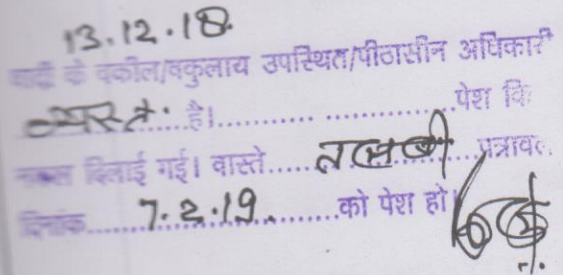 13.12.18
वादी के वकील/वकुलाय उपस्थित/पीठासीन अधिकारी
व्यस्त है।.......... ..............पेश वि
नकल दिलाई गई। वास्ते.....तलबी.....पत्राव
दिनांक.....7.2.19..........को पेश हो